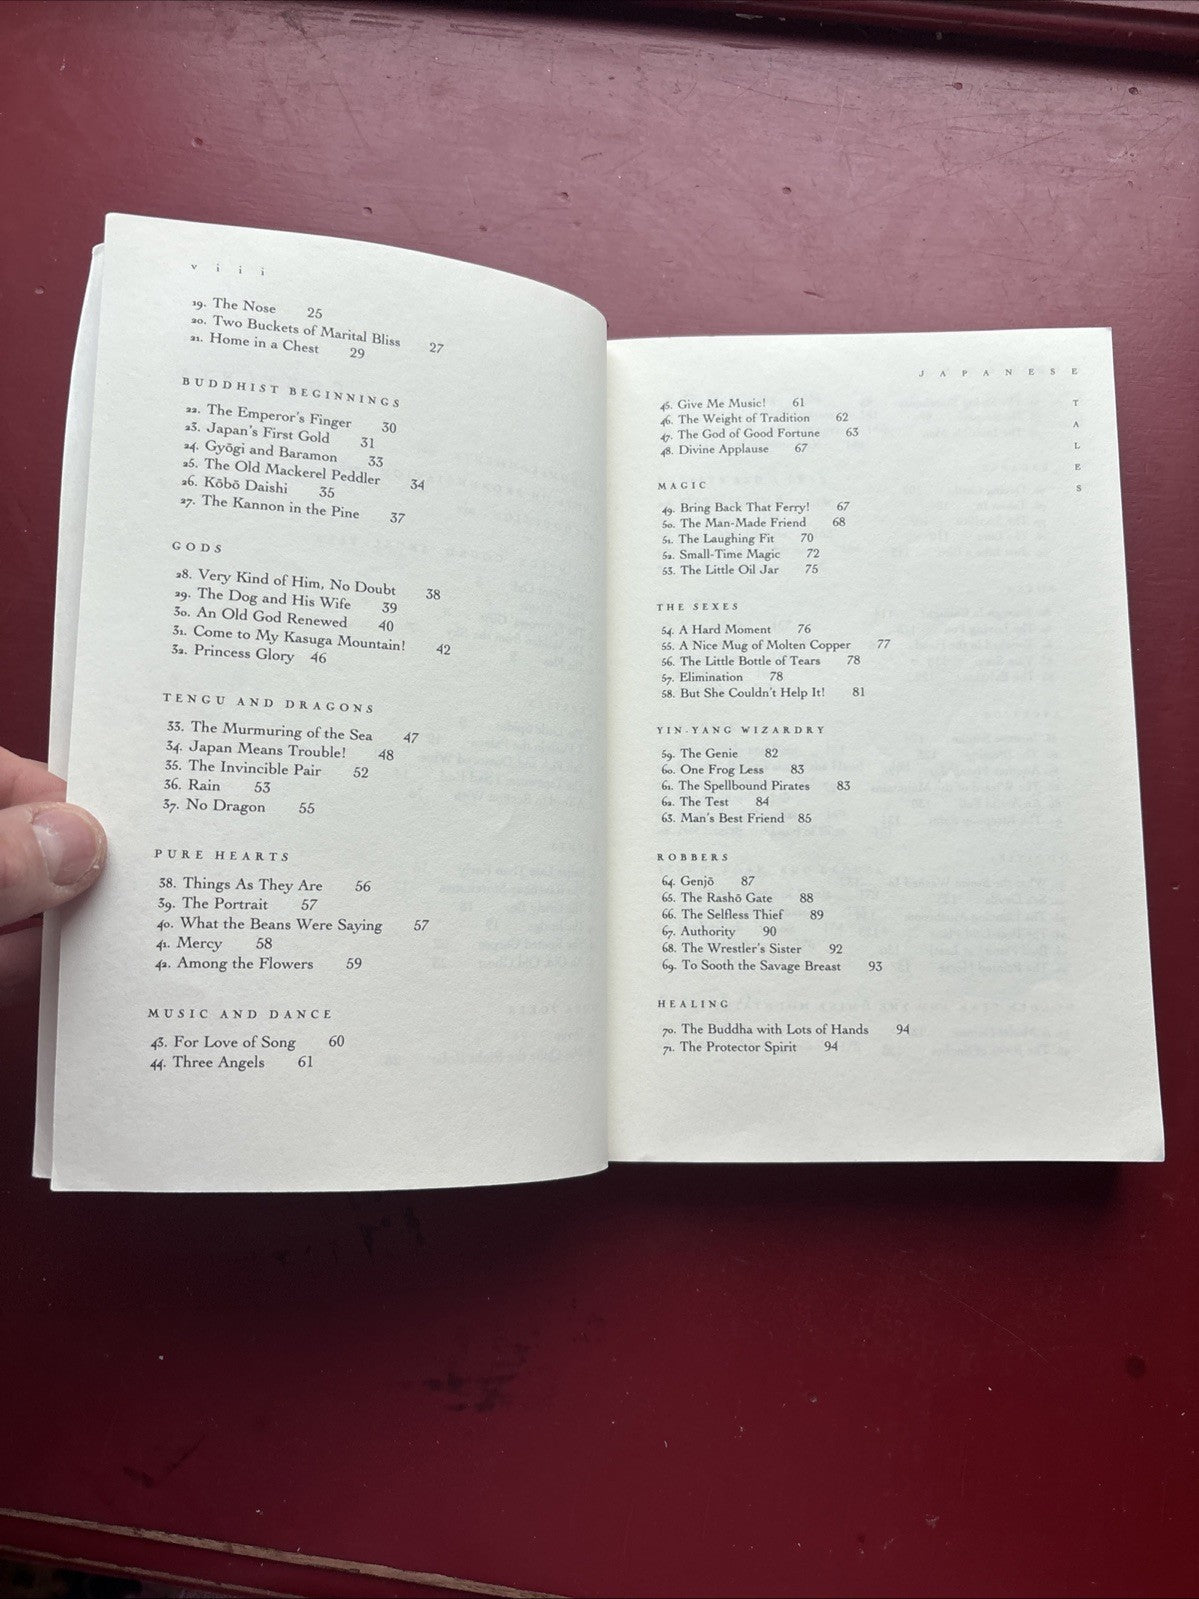 viii
19. The Nose 25
20. Two Buckets of Marital Bliss 27
21. Home in a Chest 29
BUDDHIST BEGINNINGS
22. The Emperor's Finger 30
23. Japan's First Gold 31
24. Gyōgi and Baramon 33
25. The Old Mackerel Peddler 34
26. Kōbō Daishi 35
27. The Kannon in the Pine 37
GODS
28. Very Kind of Him, No Doubt 38
29. The Dog and His Wife 39
30. An Old God Renewed 40
31. Come to My Kasuga Mountain! 42
32. Princess Glory 46
TENGU AND DRAGONS
33. The Murmuring of the Sea 47
34. Japan Means Trouble! 48
35. The Invincible Pair 52
36. Rain 53
37. No Dragon 55
PURE HEARTS
38. Things As They Are 56
39. The Portrait 57
40. What the Beans Were Saying 57
41. Mercy 58
42. Among the Flowers 59
MUSIC AND DANCE
43. For Love of Song 60
44. Three Angels 61
JAPANESE
TALES
45. Give Me Music! 61
46. The Weight of Tradition 62
47. The God of Good Fortune 63
48. Divine Applause 67
MAGIC
49. Bring Back That Ferry! 67
50. The Man-Made Friend 68
51. The Laughing Fit 70
52. Small-Time Magic 72
53. The Little Oil Jar 75
THE SEXES
54. A Hard Moment 76
55. A Nice Mug of Molten Copper 77
56. The Little Bottle of Tears 78
57. Elimination 78
58. But She Couldn't Help It! 81
YIN-YANG WIZARDRY
59. The Genie 82
60. One Frog Less 83
61. The Spellbound Pirates 83
62. The Test 84
63. Man's Best Friend 85
ROBBERS
64. Genjō 87
65. The Rashō Gate 88
66. The Selfless Thief 89
67. Authority 90
68. The Wrestler's Sister 92
69. To Sooth the Savage Breast 93
HEALING
70. The Buddha with Lots of Hands 94
71. The Protector Spirit 94